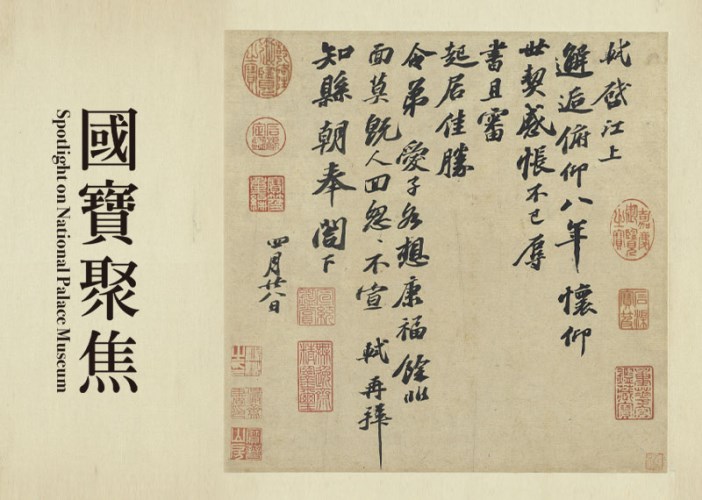 國寶聚焦
Spotlight on National Palace Museum
軾啟江上
邂逅俯仰八年懷仰
世契感悵不已辱
書且審
起居佳勝
令弟愛子各想康福餘非
面莫既人回怱〻不宣 軾再拜
知縣朝奉閤下
四月廿八日